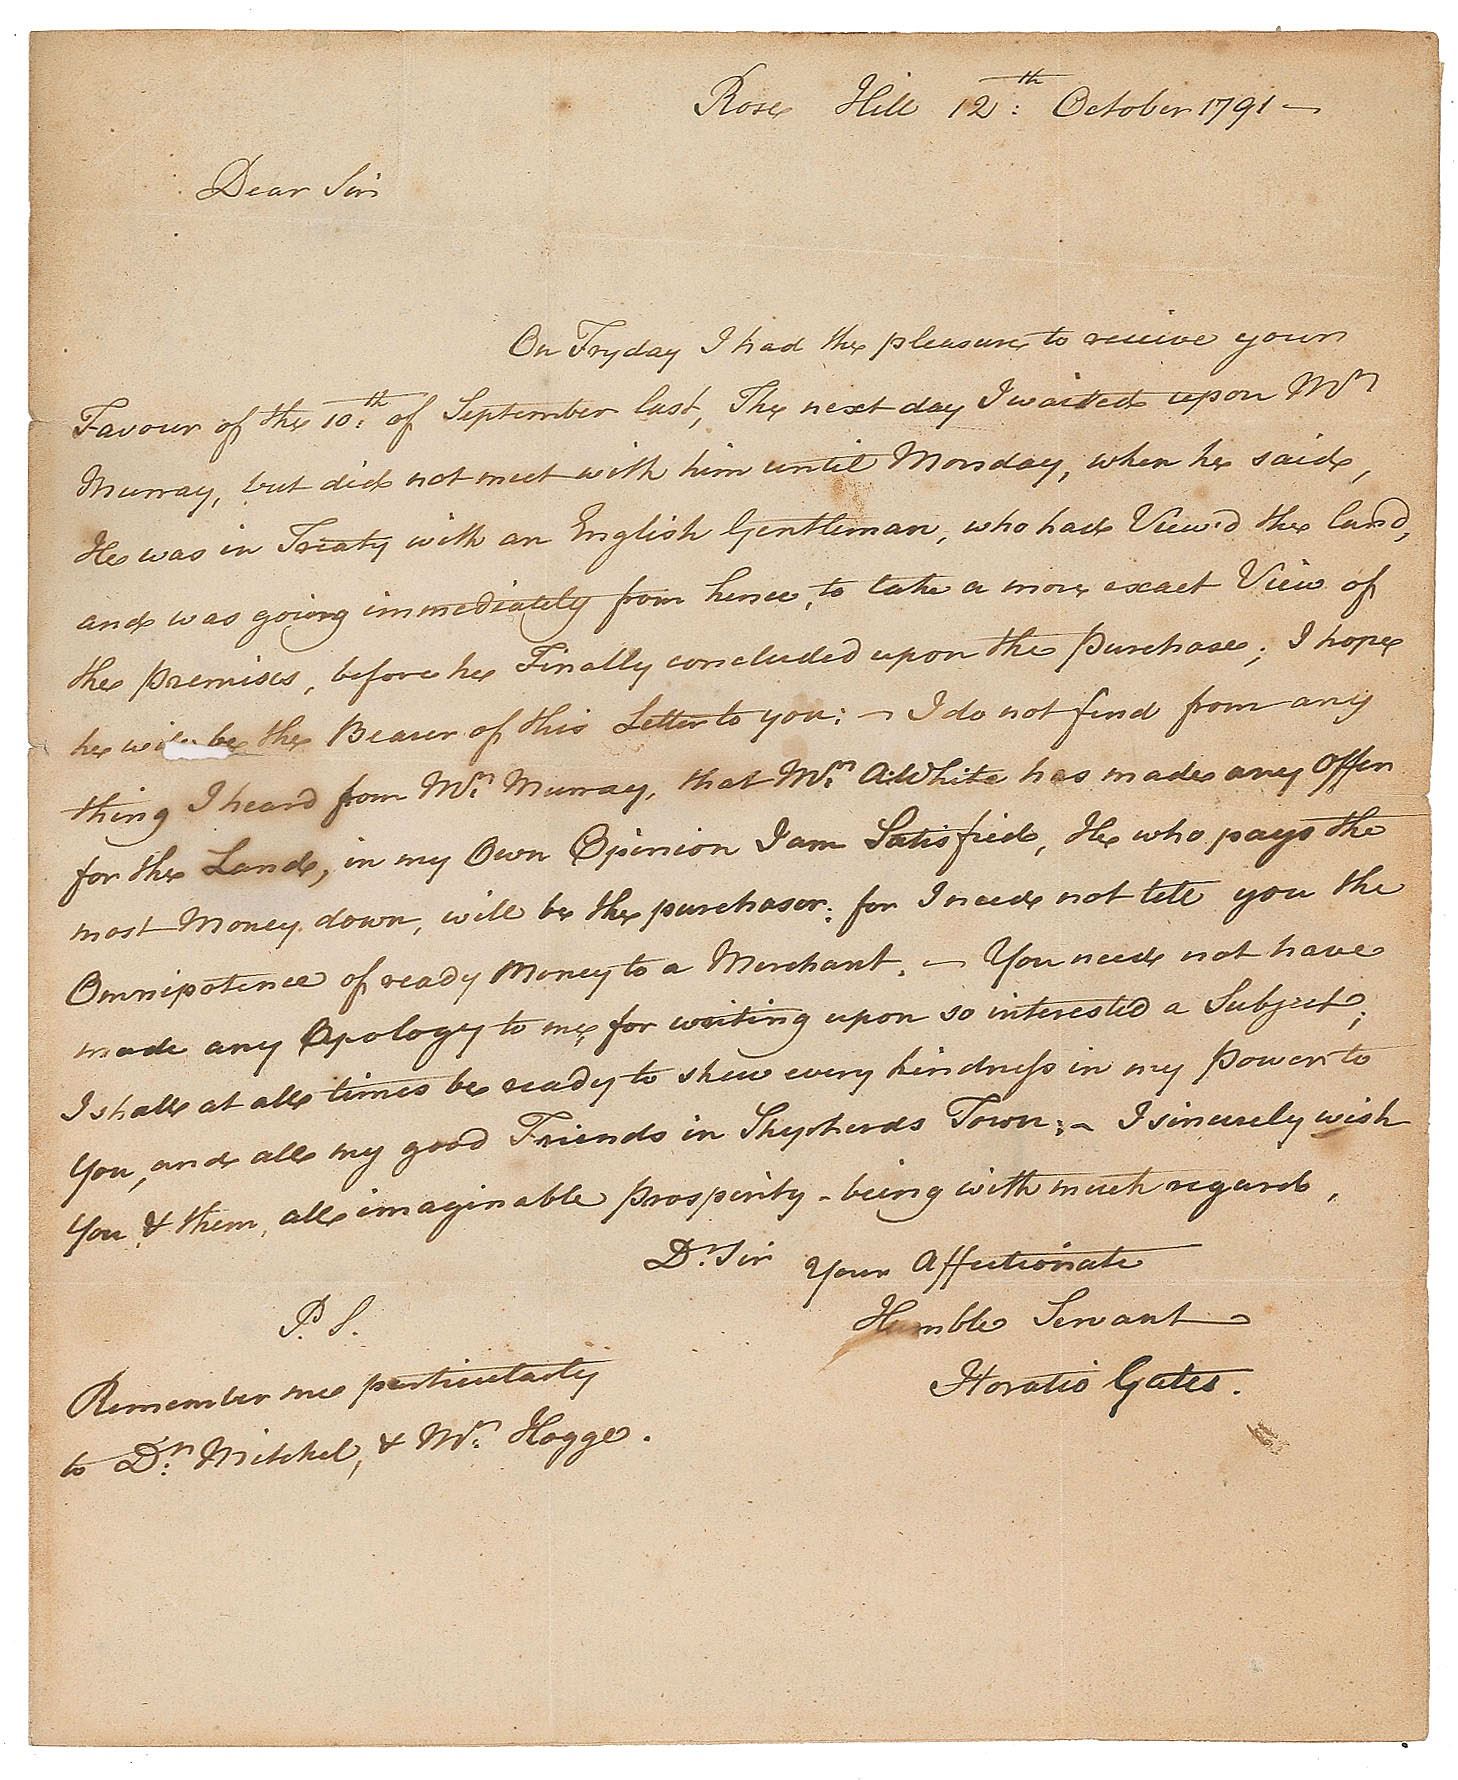 Rose Hill 12:th October 1791 —
Dear Sir
On Fryday I had the pleasure to receive your
Favour of the 10:th of September last, The next day I waited upon Mr
Murray, but did not meet with him until Monday, when he said,
He was in Treaty with an English Gentleman, who had View'd the land,
and was going immediately from hence, to take a more exact View of
the premises, before he Finally concluded upon the purchase; I hope
he will be the Bearer of this Letter to you: — I do not find from any
thing I heard from Mr: Murray, that Mr: A: White has made any Offer
for the Land, in my Own Opinion I am Satisfied, He who pays the
most Money down, will be the purchaser: for I need not tell you the
Omnipotence of ready Money to a Merchant. — You need not have
made any Apology to me, for writing upon so interested a Subject;
I shall at all times be ready to shew every kindness in my power to
You, and all my good Friends in Shepherds Town: — I sincerely wish
You, & them, all imaginable prosperity - being with much regard,
Dr. Sir Your Affectionate
Humble Servant
Horatio Gates.
P. S.
Remember me particularly
to Dr: Mitchel, & Mr: Hogge.